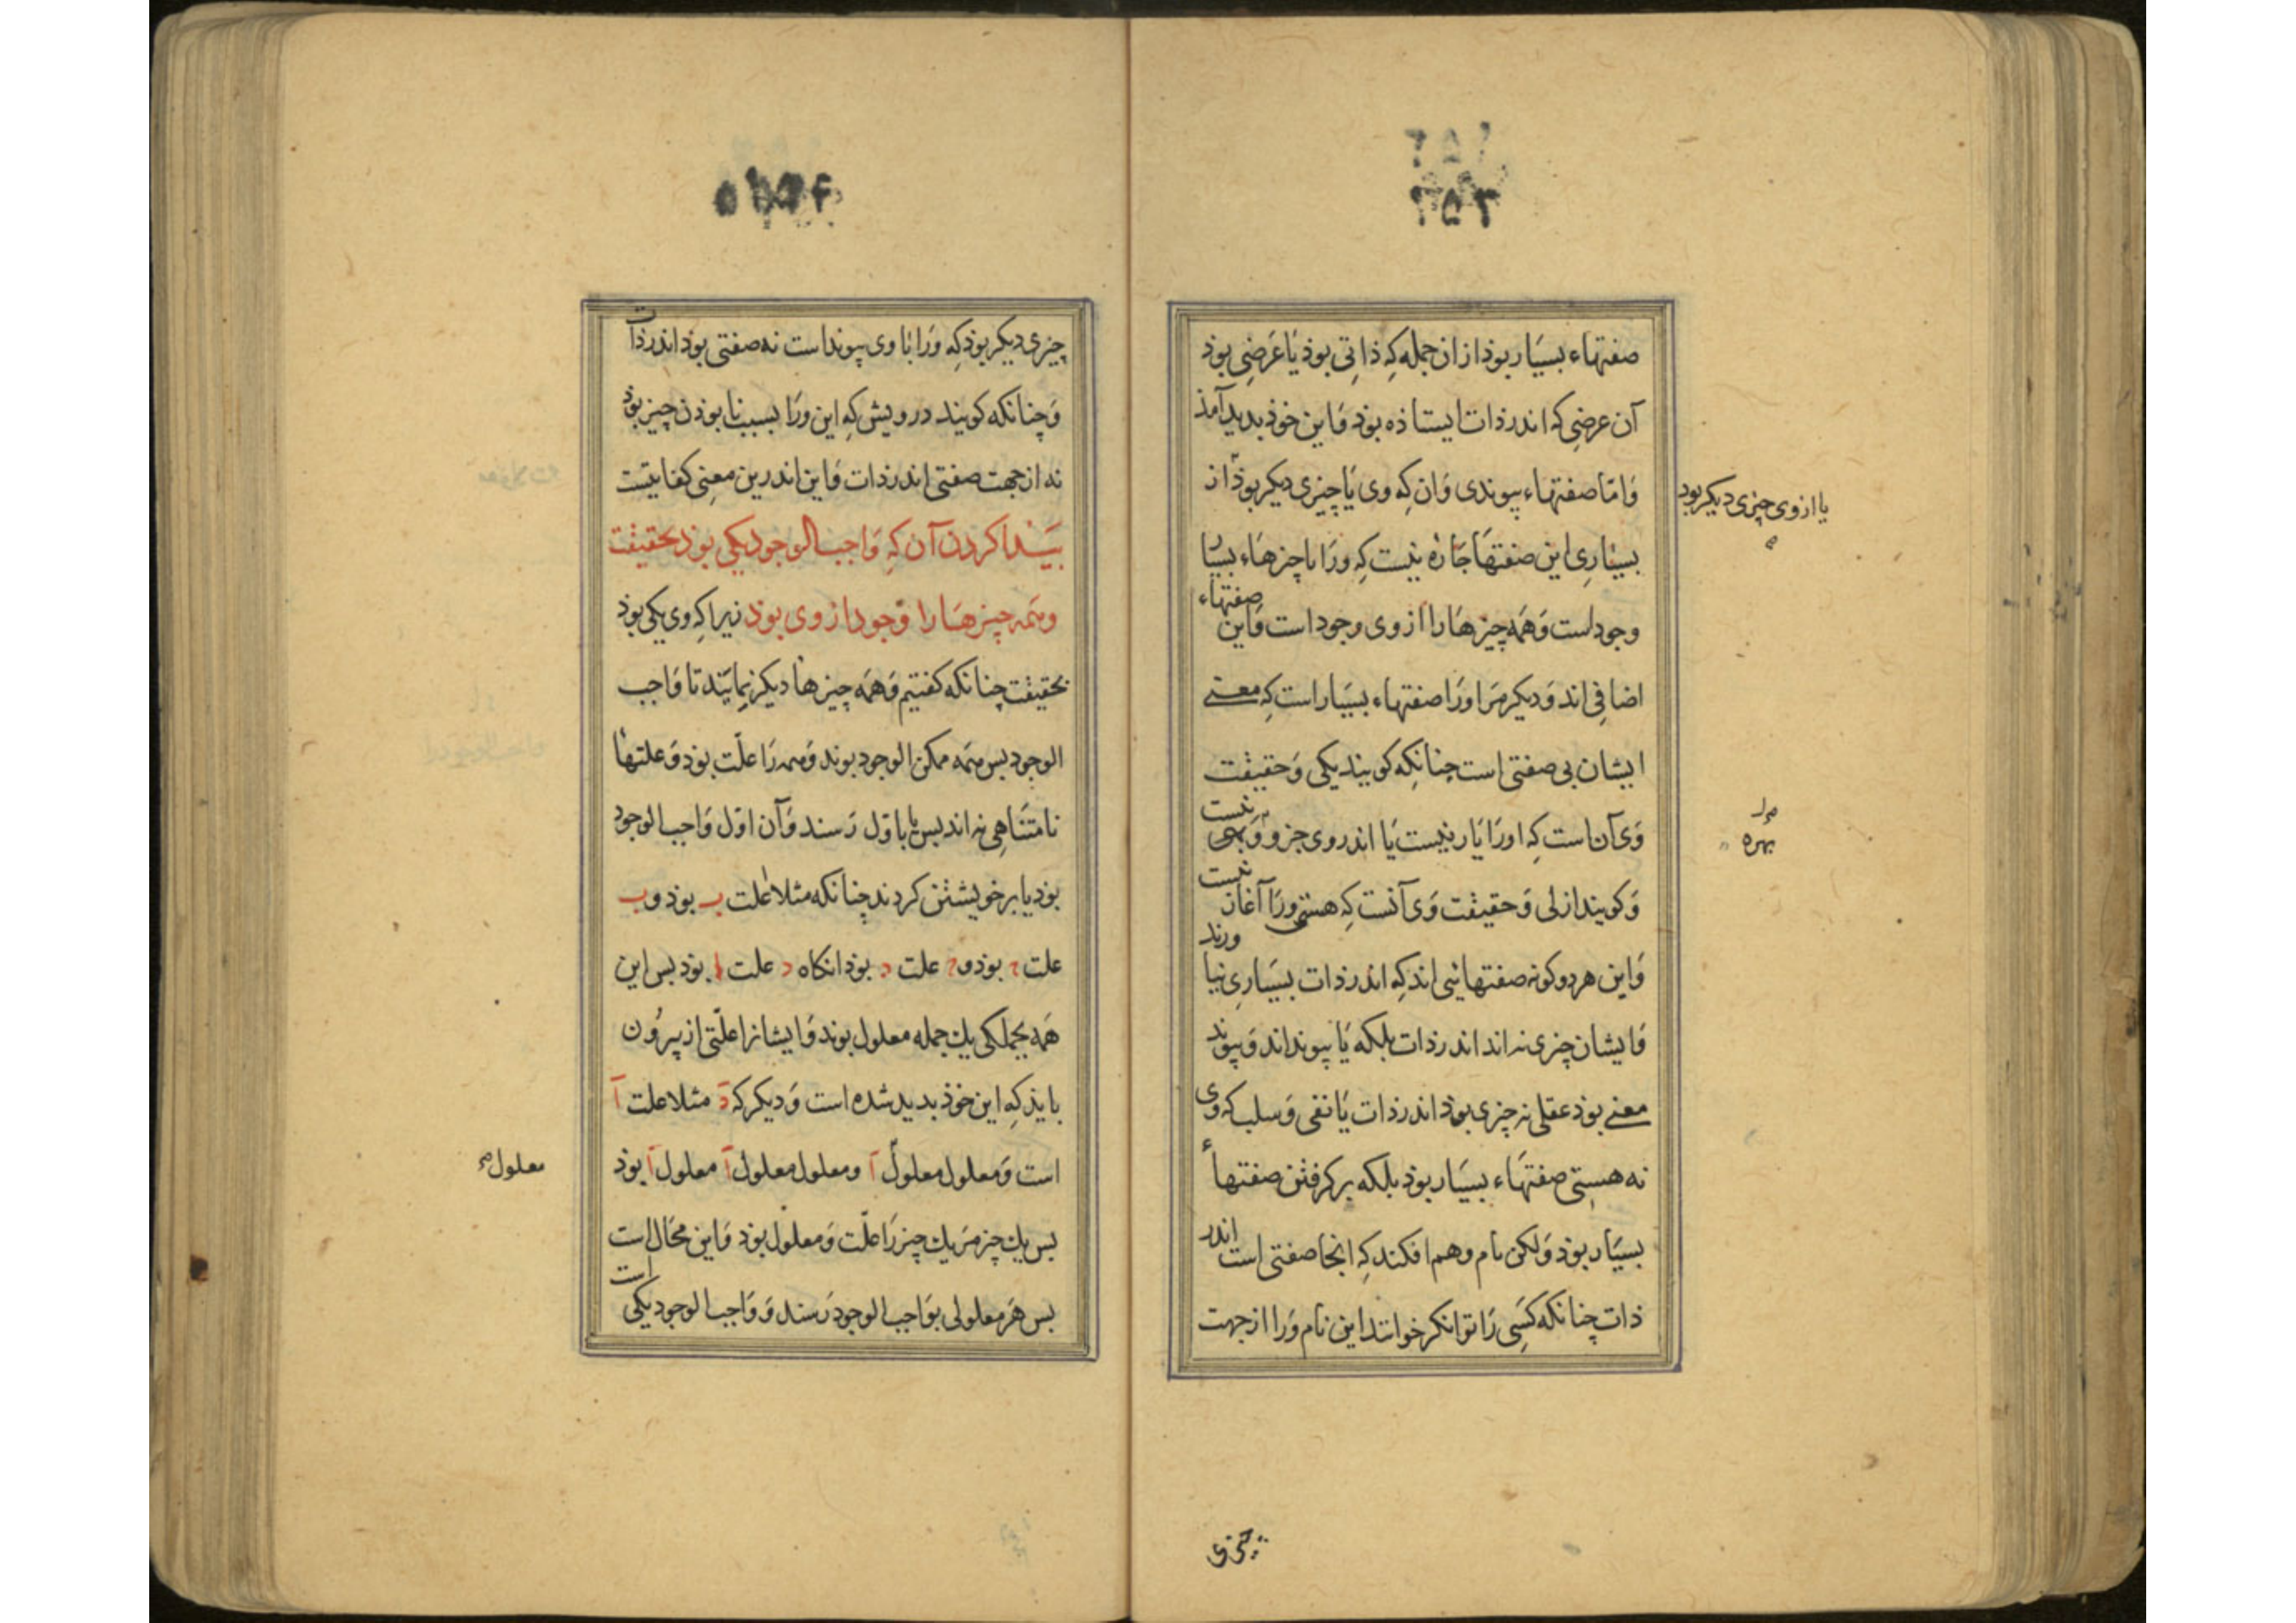 صفتهاء بسیار بوذ ازان جمله که ذاتی بوذ یا عرضی بوذ
آن عرضی که اندر ذات ایستاذه بوذ و این خوذ بدید آمذ
و امّا صفتهاء پیوندی وان که وی با چیزی دیکر بوذ از
یا از وی چیزی دیکر بود
بسیاری این صفتها جاره نیست که ورا با چیزهاء بسیار
وجود است و همه چیزها را از وی وجود است و این صفتهاء
اضافی اند و دیکر مر اورا صفتهاء بسیار است که معنی
ایشان بی صفتی است چنانکه کویند یکی و حقیقت
وی آن است که اورا یار نیست یا اندر وی جزو و بهره نیست
بهره
و کویند ازلی و حقیقت وی آنست که هستی ورا آغاز نیست
و این هر دو کونه صفتهائی اند که اندر ذات بسیاری نیاورند
و ایشان چیزی نه اند اندر ذات بلکه یا پیوند اند و پیوند
معنی بوذ عقلی نه چیزی بوذ اندر ذات یا نفی و سلب که وی
نه هستی صفتهاء بسیار بوذ بلکه برکرفتن صفتهاء
بسیار بوذ ولکن نام وهم افکند که انجا صفتی است اندر
ذات چنانکه کسی را توانکر خوانند این نام ورا از جهت
چیزی
چیزی دیکر بوذ که ورا با وی پیوند است نه صفتی بوذ اندر ذات
و چنانکه کویند درویش که این ورا بسبب نابوذن چیز بوذ
نه از جهت صفتی اندر ذات و این اندرین معنی کفایتست
بیدا کردن آن که واجب الوجود یکی بوذ بحقیقت
و همه چیزها را وجود از وی بوذ زیرا که وی یکی بوذ
بحقیقت چنانکه کفتیم و همه چیزها دیکر نمایند تا واجب
الوجود بس همه ممکن الوجود بوند و همه را علّت بوذ و علتها
نامتناهی نه اند بس یا باوّل رسند و آن اوّل واجب الوجود
بوذ یا بر خویشتن کردند چنانکه مثلا علت ب بوذ و ب
علت ج بوذ و ج علت د بوذ انکاه د علت ا بوذ بس این
همه بجملکی یك جمله معلول بوند و ایشانرا علّتی از بیرون
بایذ که این خوذ بدید شده است و دیکر که د مثلا علت آ
است و معلول معلول آ و معلول معلول آ معلول آ بوذ
معلول
بس یك چیز مر یك چیز را علّت و معلول بوذ و این محال است
بس هر معلولی بواجب الوجود رسند و واجب الوجود یکی است